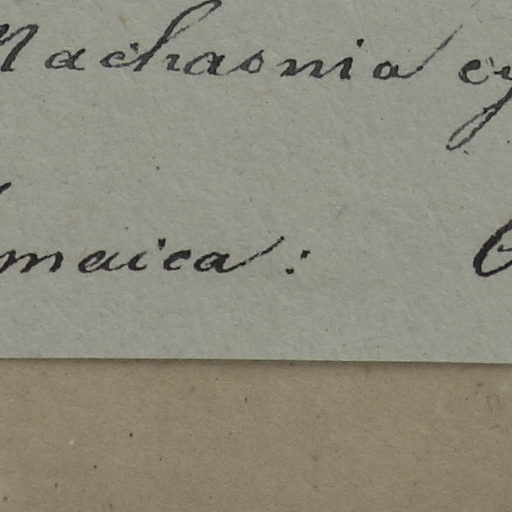 Machaonia cy
maica: